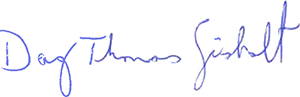 Dag Thomas Gisholt